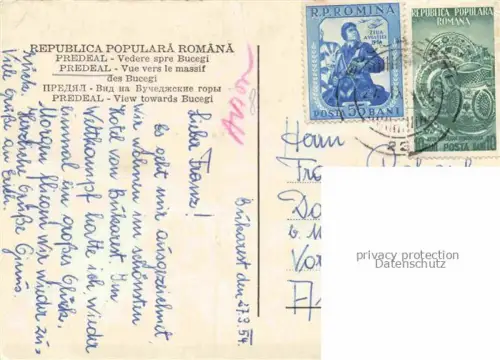 REPUBLICA POPULARĂ ROMÂNĂ
PREDEAL - Vedere spre Bucegi
PREDEAL - Vue vers le massif
des Bucegi
ПРЕДЯЛ - Вид на Бучеджские горы
PREDEAL - View towards Bucegi
R.P. ROMINA
ZIUA
AVIATIEI
1954
POSTA 55 BANI
REPUBLICA POPULARA
ROMANA
POSTA
Bukarest den 27.9.54.
Lieber Franz!
Es geht mir ausgezeichnet
wir wohnen im schönsten
Hotel von Bukarest. Im
Wettkampf hatte ich wieder
einmal ein großes Glück.
Morgen fliegen wir wieder zu-
rück. Herzliche Grüße
Viele Grüße an
Herrn
privacy protection
Datenschutz